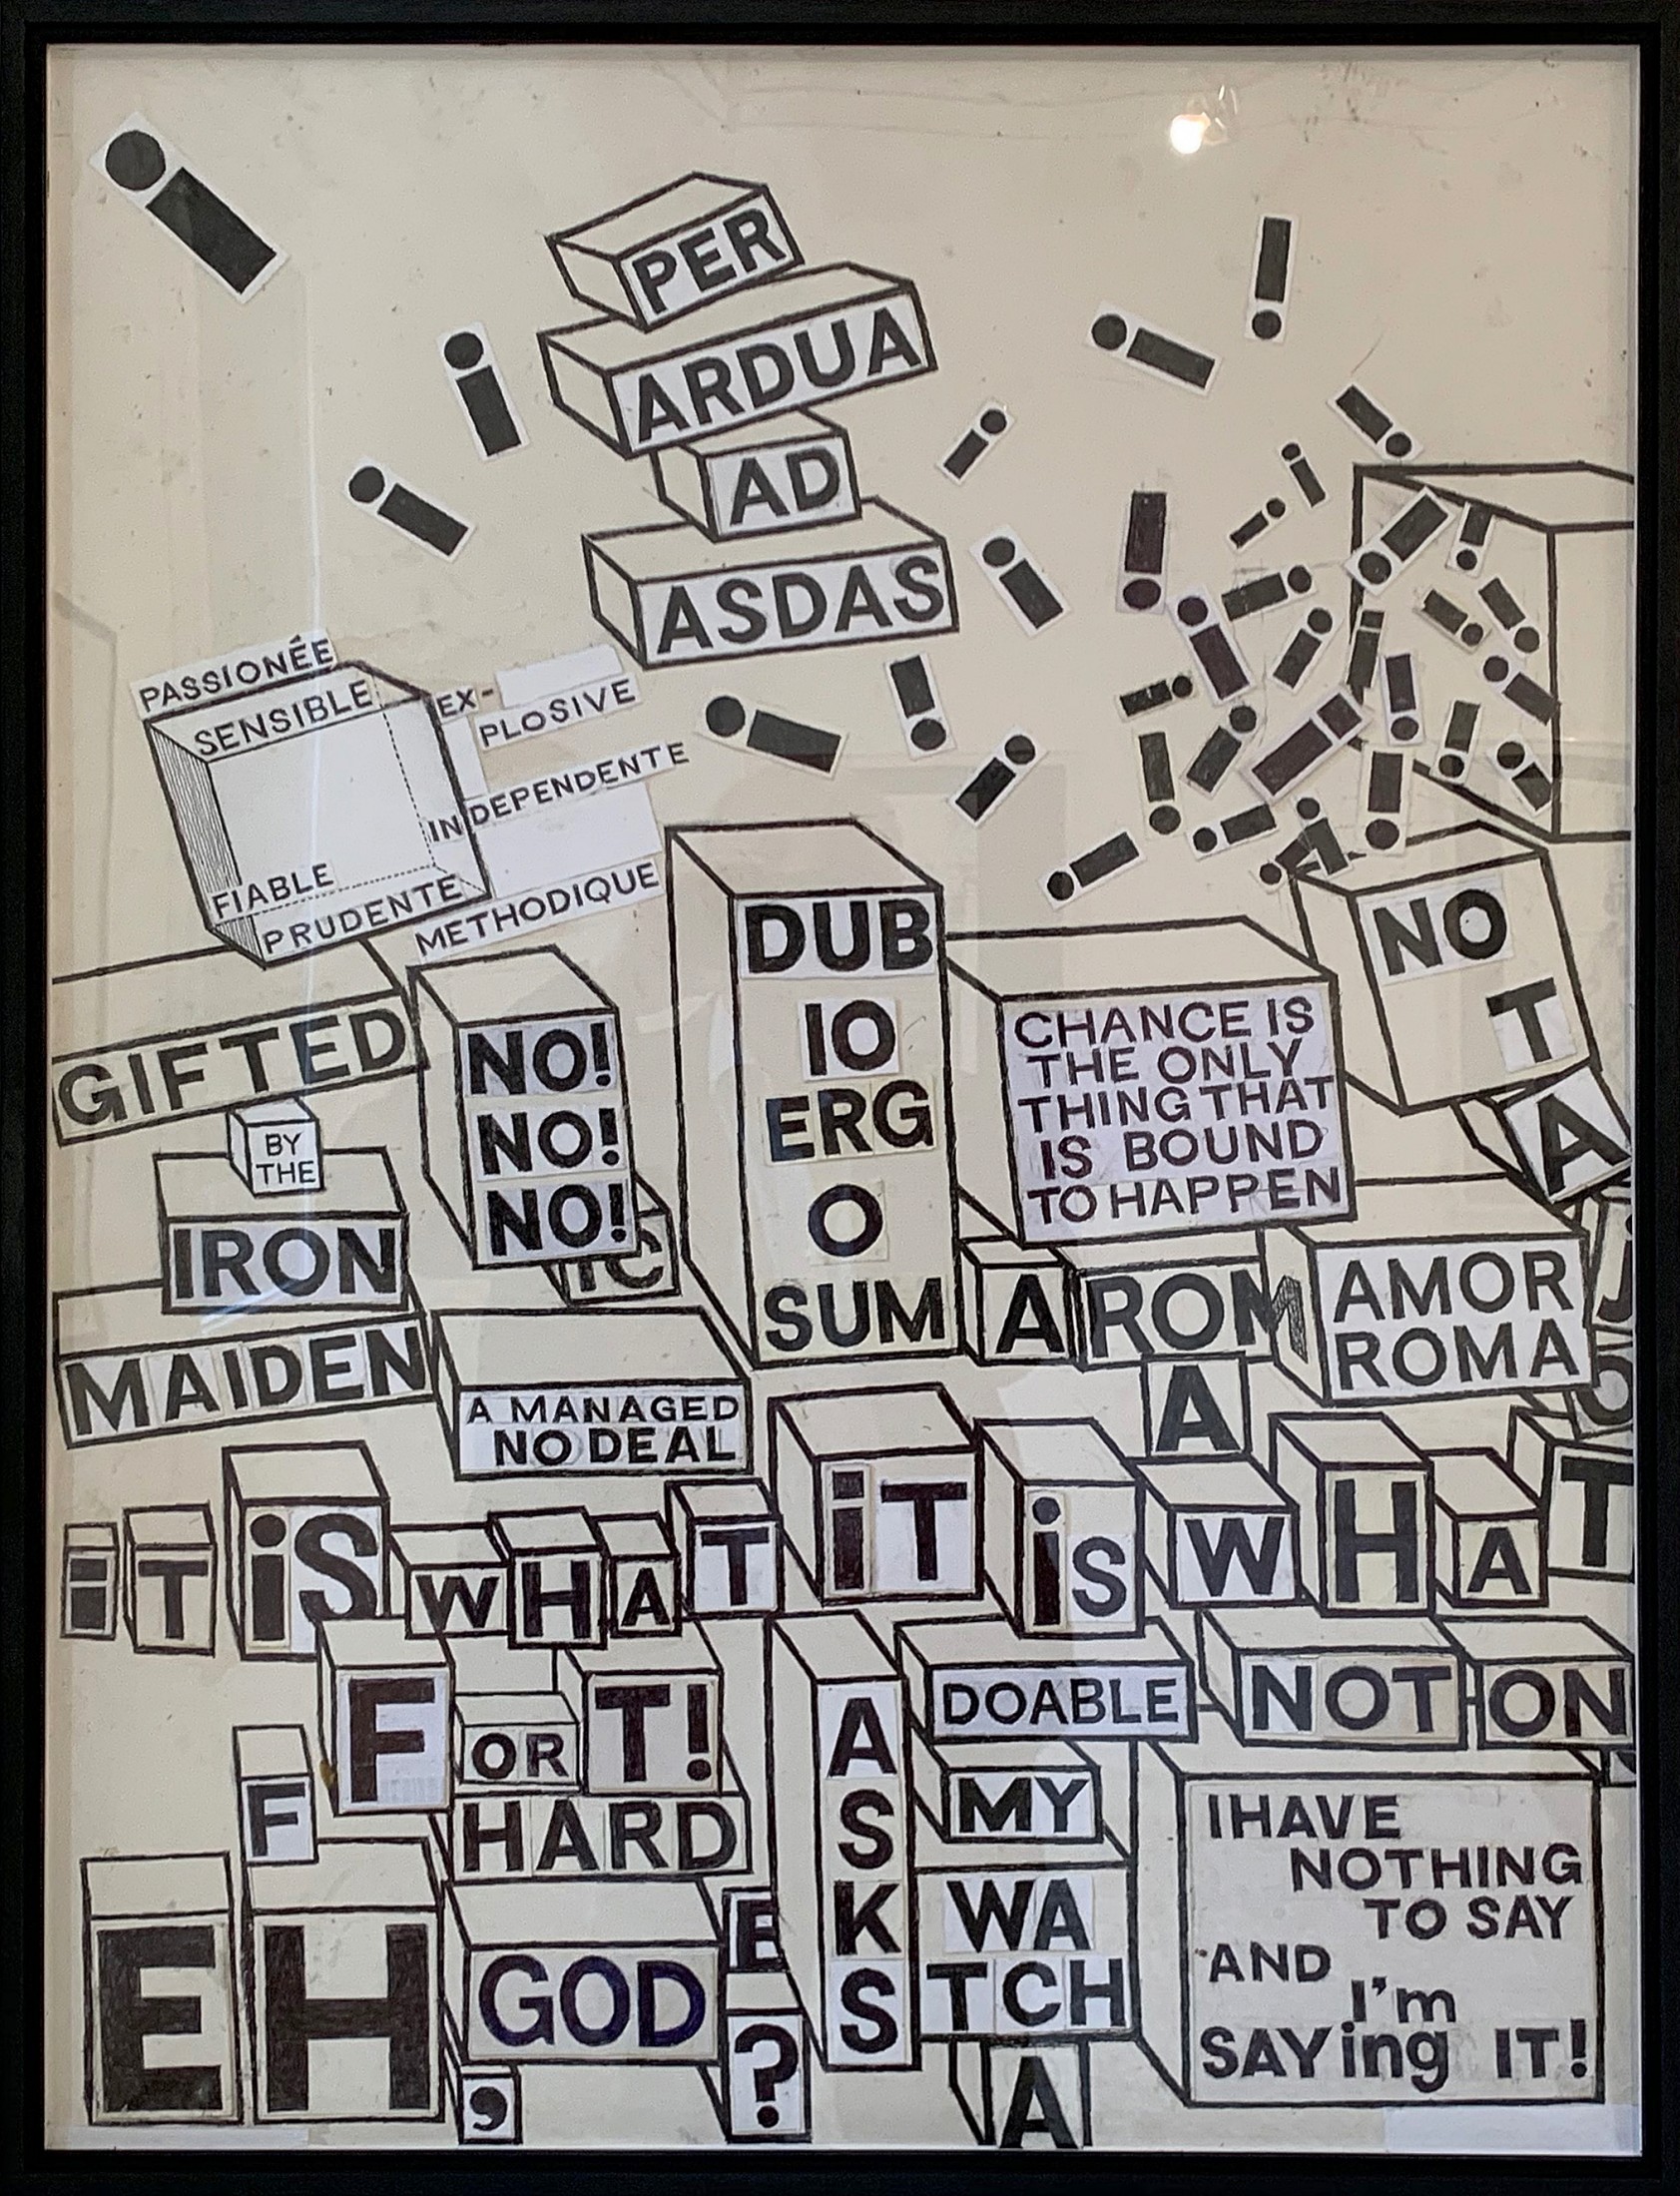 PER
ARDUA
AD
ASDAS
PASSIONÉE
SENSIBLE
EX-
PLOSIVE
INDEPENDENTE
FIABLE
PRUDENTE
METHODIQUE
GIFTED
BY
THE
IRON
MAIDEN
NO!
NO!
NO!
A MANAGED
NO DEAL
DUB
IO
ERG
O
SUM
CHANCE IS
THE ONLY
THING THAT
IS BOUND
TO HAPPEN
NO
T
A
A ROM
A
AMOR
ROMA
iT iS WHAT iT iS WHAT
F OR T!
F HARD
EH, GOD E?
A
S
K
S
DOABLE NOT ON
MY
WA
TCH
A
I HAVE
NOTHING
TO SAY
AND
I'm
SAYing IT!